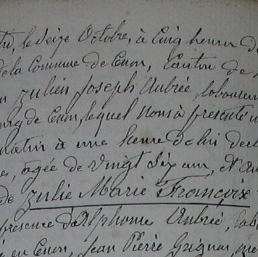 le Seize Octobre, à Cinq heures d
de la Commune de Canton de
Julien Joseph Aubrée, laboureur
lequel Nous a présenté u
matin à une heure de lui decl
agée de Vingt Six ans,
de Julie Marie Françoise
présence d'Alphonse Aubrée, lab
en Jean Pierre